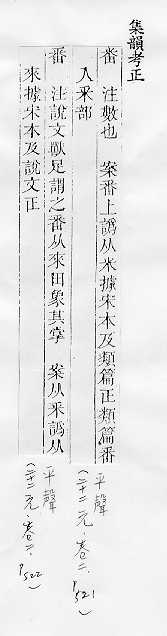 集韻考正
番 注數也 案番上譌从米據宋本及類篇正類篇番
入釆部
平聲
(二十二元·卷二, P521)
番 注說文獸足謂之番从釆田象其掌 案从釆譌从
來據宋本及說文正
平聲
(二十二元·卷二, P522)